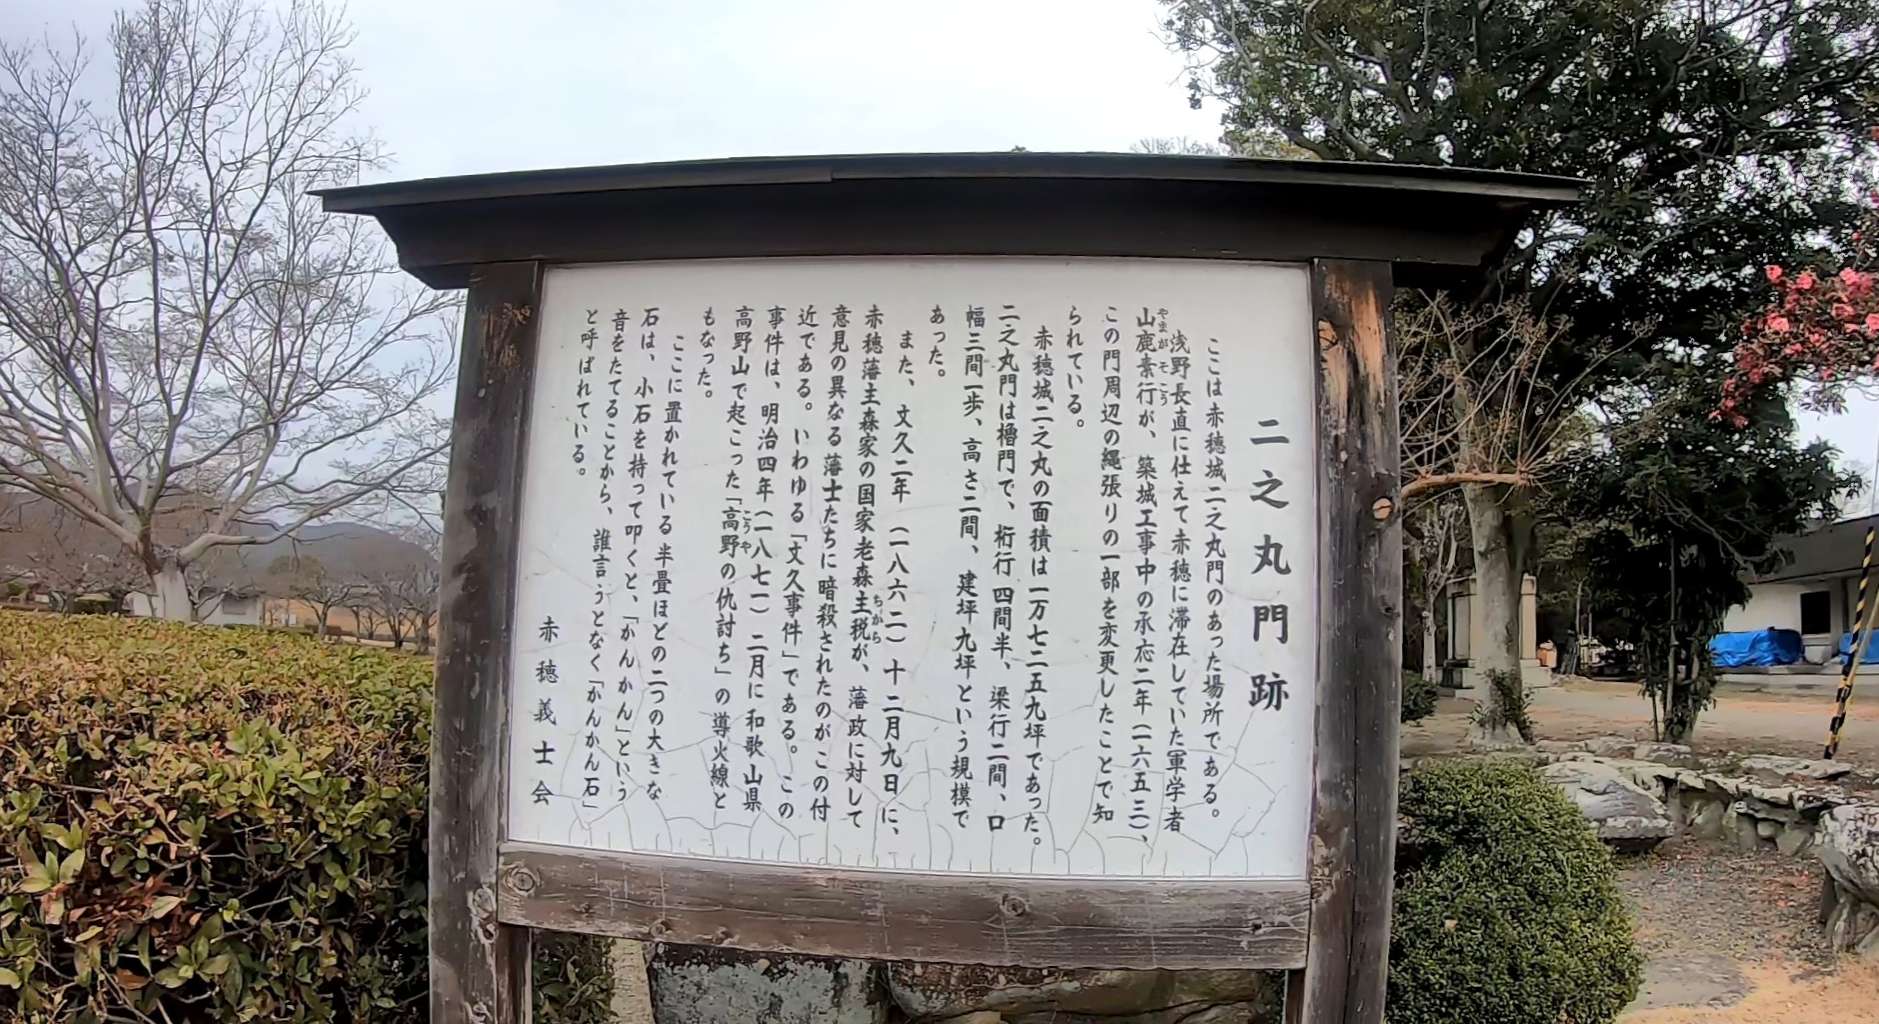 二之丸門跡
ここは赤穂城二之丸門のあった場所である。
浅野長直に仕えて赤穂に滞在していた軍学者
山鹿素行が、築城工事中の承応二年(一六五三)、
やまが そこう
この門周辺の縄張りの一部を変更したことで知
られている。
赤穂城二之丸の面積は一万七二五九坪であった。
二之丸門は櫓門で、桁行四間半、梁行二間、口
幅三間一歩、高さ二間、建坪九坪という規模で
あった。
また、文久二年(一八六二)十二月九日に、
赤穂藩主森家の国家老森主税が、藩政に対して
ちから
意見の異なる藩士たちに暗殺されたのがこの付
近である。いわゆる「文久事件」である。この
事件は、明治四年(一八七一)二月に和歌山県
高野山で起こった「高野の仇討ち」の導火線と
こうや
もなった。
ここに置かれている半畳ほどの二つの大きな
石は、小石を持って叩くと、「かんかん」という
音をたてることから、誰言うとなく「かんかん石」
と呼ばれている。
赤穂義士会